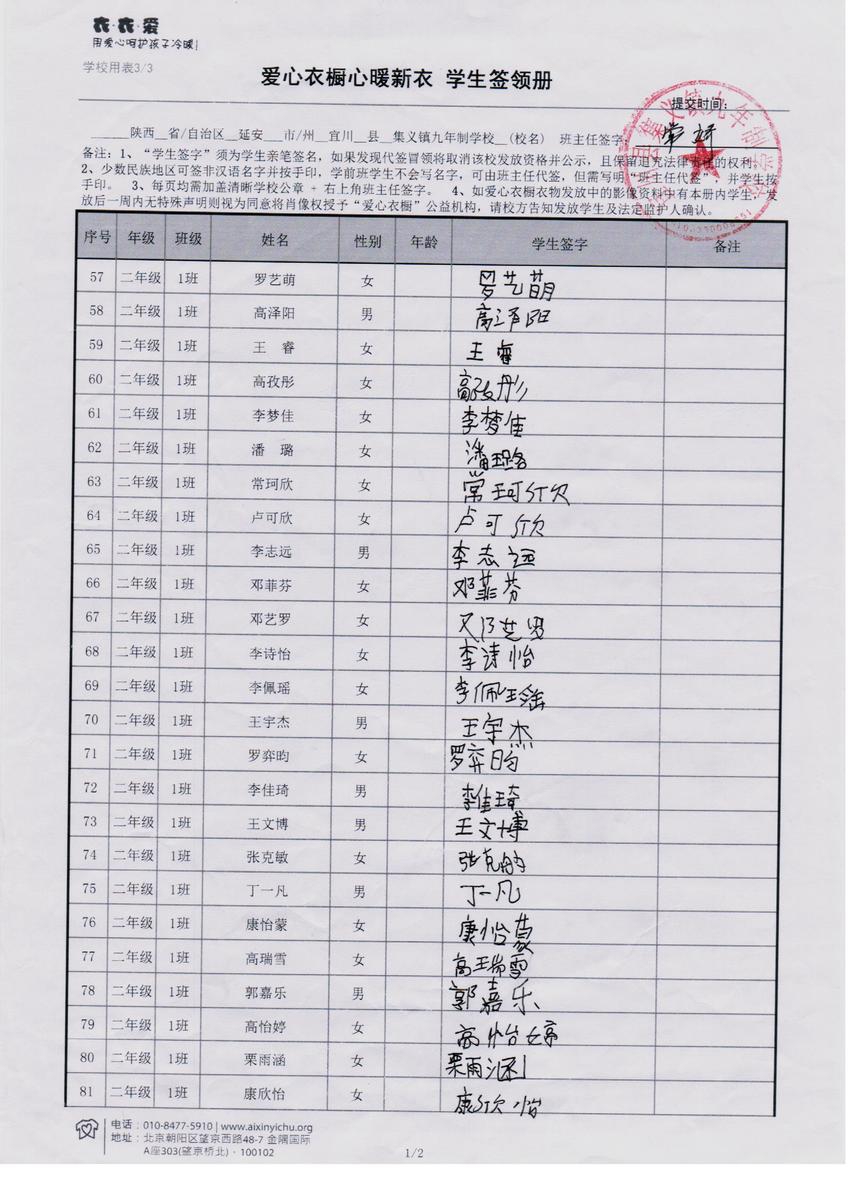 衣·衣·爱
用爱心呵护孩子冷暖!
学校用表3/3
爱心衣橱心暖新衣 学生签领册
提交时间:
______陕西__省/自治区__延安___市/州__宜川__县__集义镇九年制学校__(校名) 班主任签字 常妍
备注: 1、“学生签字”须为学生亲笔签名,如果发现代签冒领将取消该校发放资格并公示,且保留追究法律责任的权利。
2、少数民族地区可签非汉语名字并按手印,学前班学生不会写名字,可由班主任代签,但需写明“班主任代签”,并学生按
手印。 3、每页均需加盖清晰学校公章 + 右上角班主任签字。 4、如爱心衣橱衣物发放中的影像资料中有本册内学生,发
放后一周内无特殊声明则视为同意将肖像权授予“爱心衣橱”公益机构,请校方告知发放学生及法定监护人确认。
序号 年级 班级 姓名 性别 年龄 学生签字 备注
57 二年级 1班 罗艺萌 女 罗艺萌
58 二年级 1班 高泽阳 男 高泽阳
59 二年级 1班 王 睿 女 王睿
60 二年级 1班 高孜彤 女 高孜彤
61 二年级 1班 李梦佳 女 李梦佳
62 二年级 1班 潘 璐 女 潘璐
63 二年级 1班 常珂欣 女 常珂欣
64 二年级 1班 卢可欣 女 卢可欣
65 二年级 1班 李志远 男 李志远
66 二年级 1班 邓菲芬 女 邓菲芬
67 二年级 1班 邓艺罗 女 邓艺罗
68 二年级 1班 李诗怡 女 李诗怡
69 二年级 1班 李佩瑶 女 李佩瑶
70 二年级 1班 王宇杰 男 王宇杰
71 二年级 1班 罗弈昀 女 罗弈昀
72 二年级 1班 李佳琦 男 李佳琦
73 二年级 1班 王文博 男 王文博
74 二年级 1班 张克敏 女 张克敏
75 二年级 1班 丁一凡 男 丁一凡
76 二年级 1班 康怡蒙 女 康怡蒙
77 二年级 1班 高瑞雪 女 高瑞雪
78 二年级 1班 郭嘉乐 男 郭嘉乐
79 二年级 1班 高怡婷 女 高怡婷
80 二年级 1班 栗雨涵 女 栗雨涵
81 二年级 1班 康欣怡 女 康欣怡
电话:010-8477-5910 | www.aixinyichu.org
地址:北京朝阳区望京西路48-7 金隅国际
A座303(望京桥北)·100102
1/2